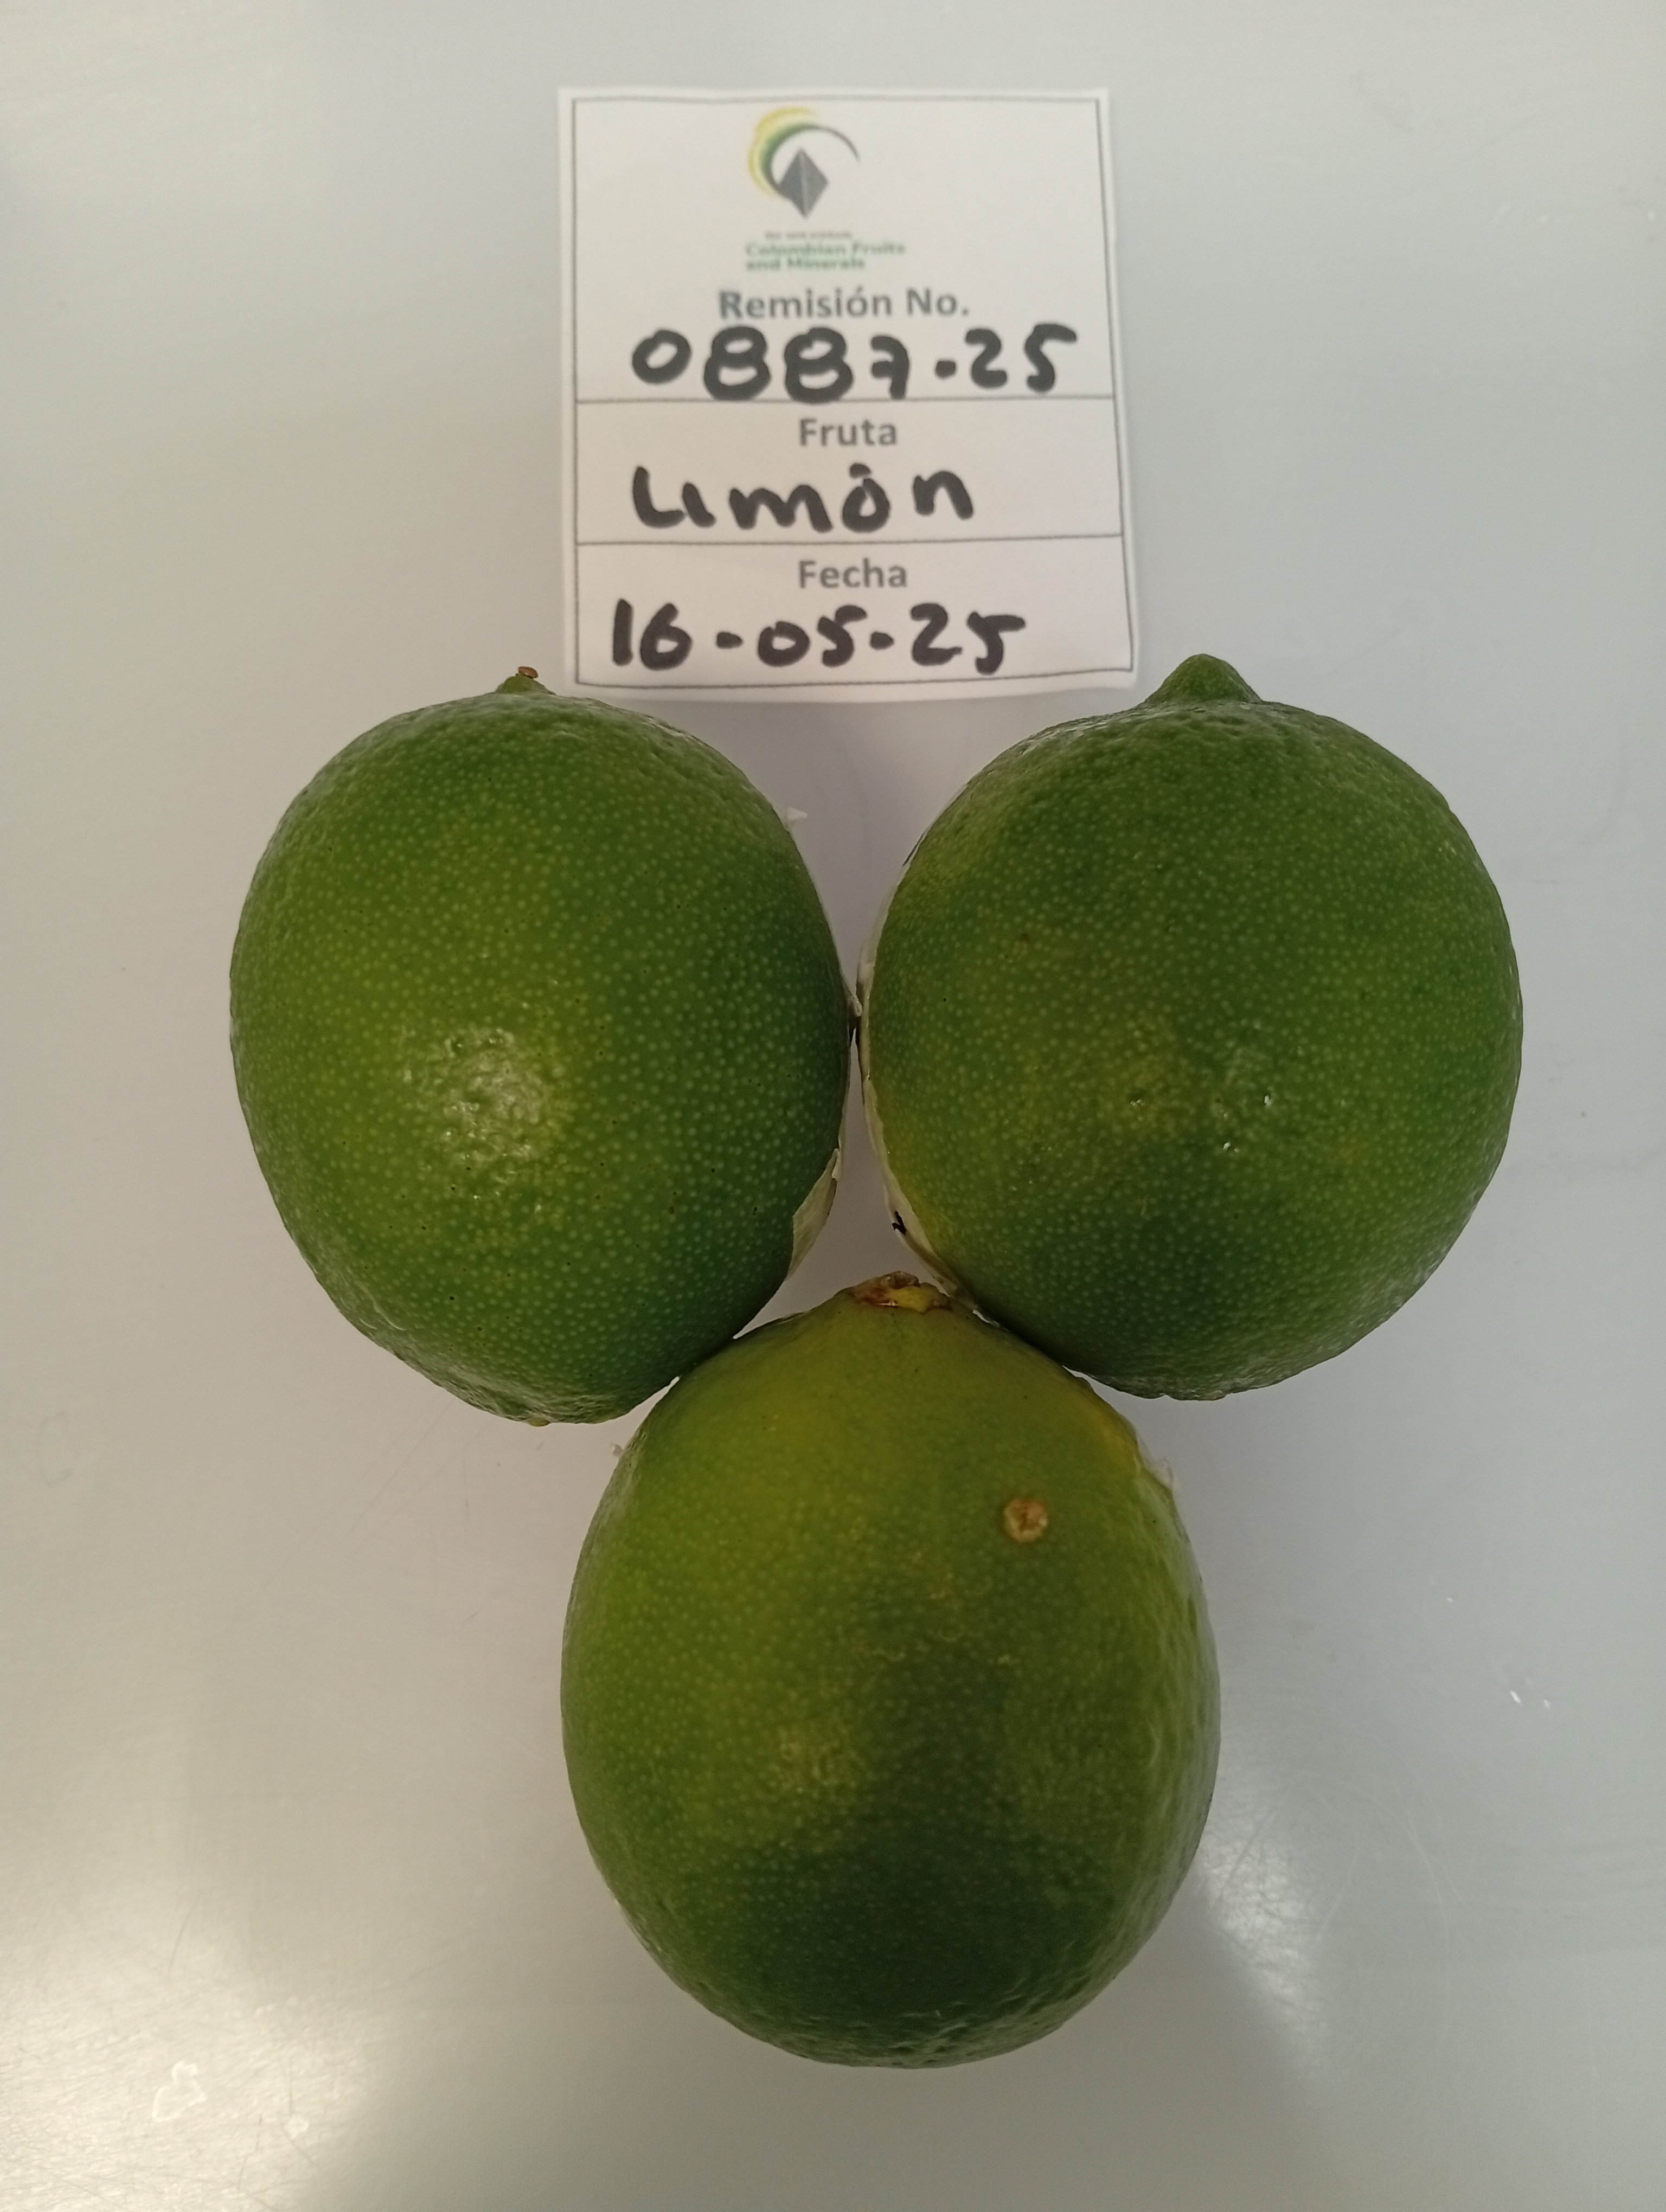 Colombian Fruits
and Minerals
Remisión No.
0887-25
Fruta
Limón
Fecha
16-05-25